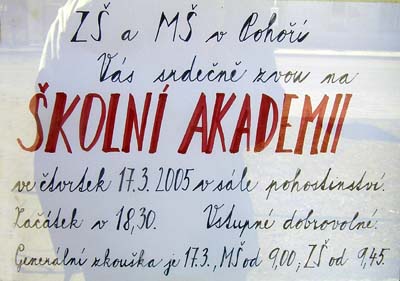 ZŠ a MŠ v Pohoří
Vás srdečně zvou na
ŠKOLNÍ AKADEMII
ve čtvrtek 17.3.2005 v sále pohostinství.
Začátek v 18,30. Vstupné dobrovolné.
Generální zkouška je 17.3., MŠ od 9,00; ZŠ od 9,45.